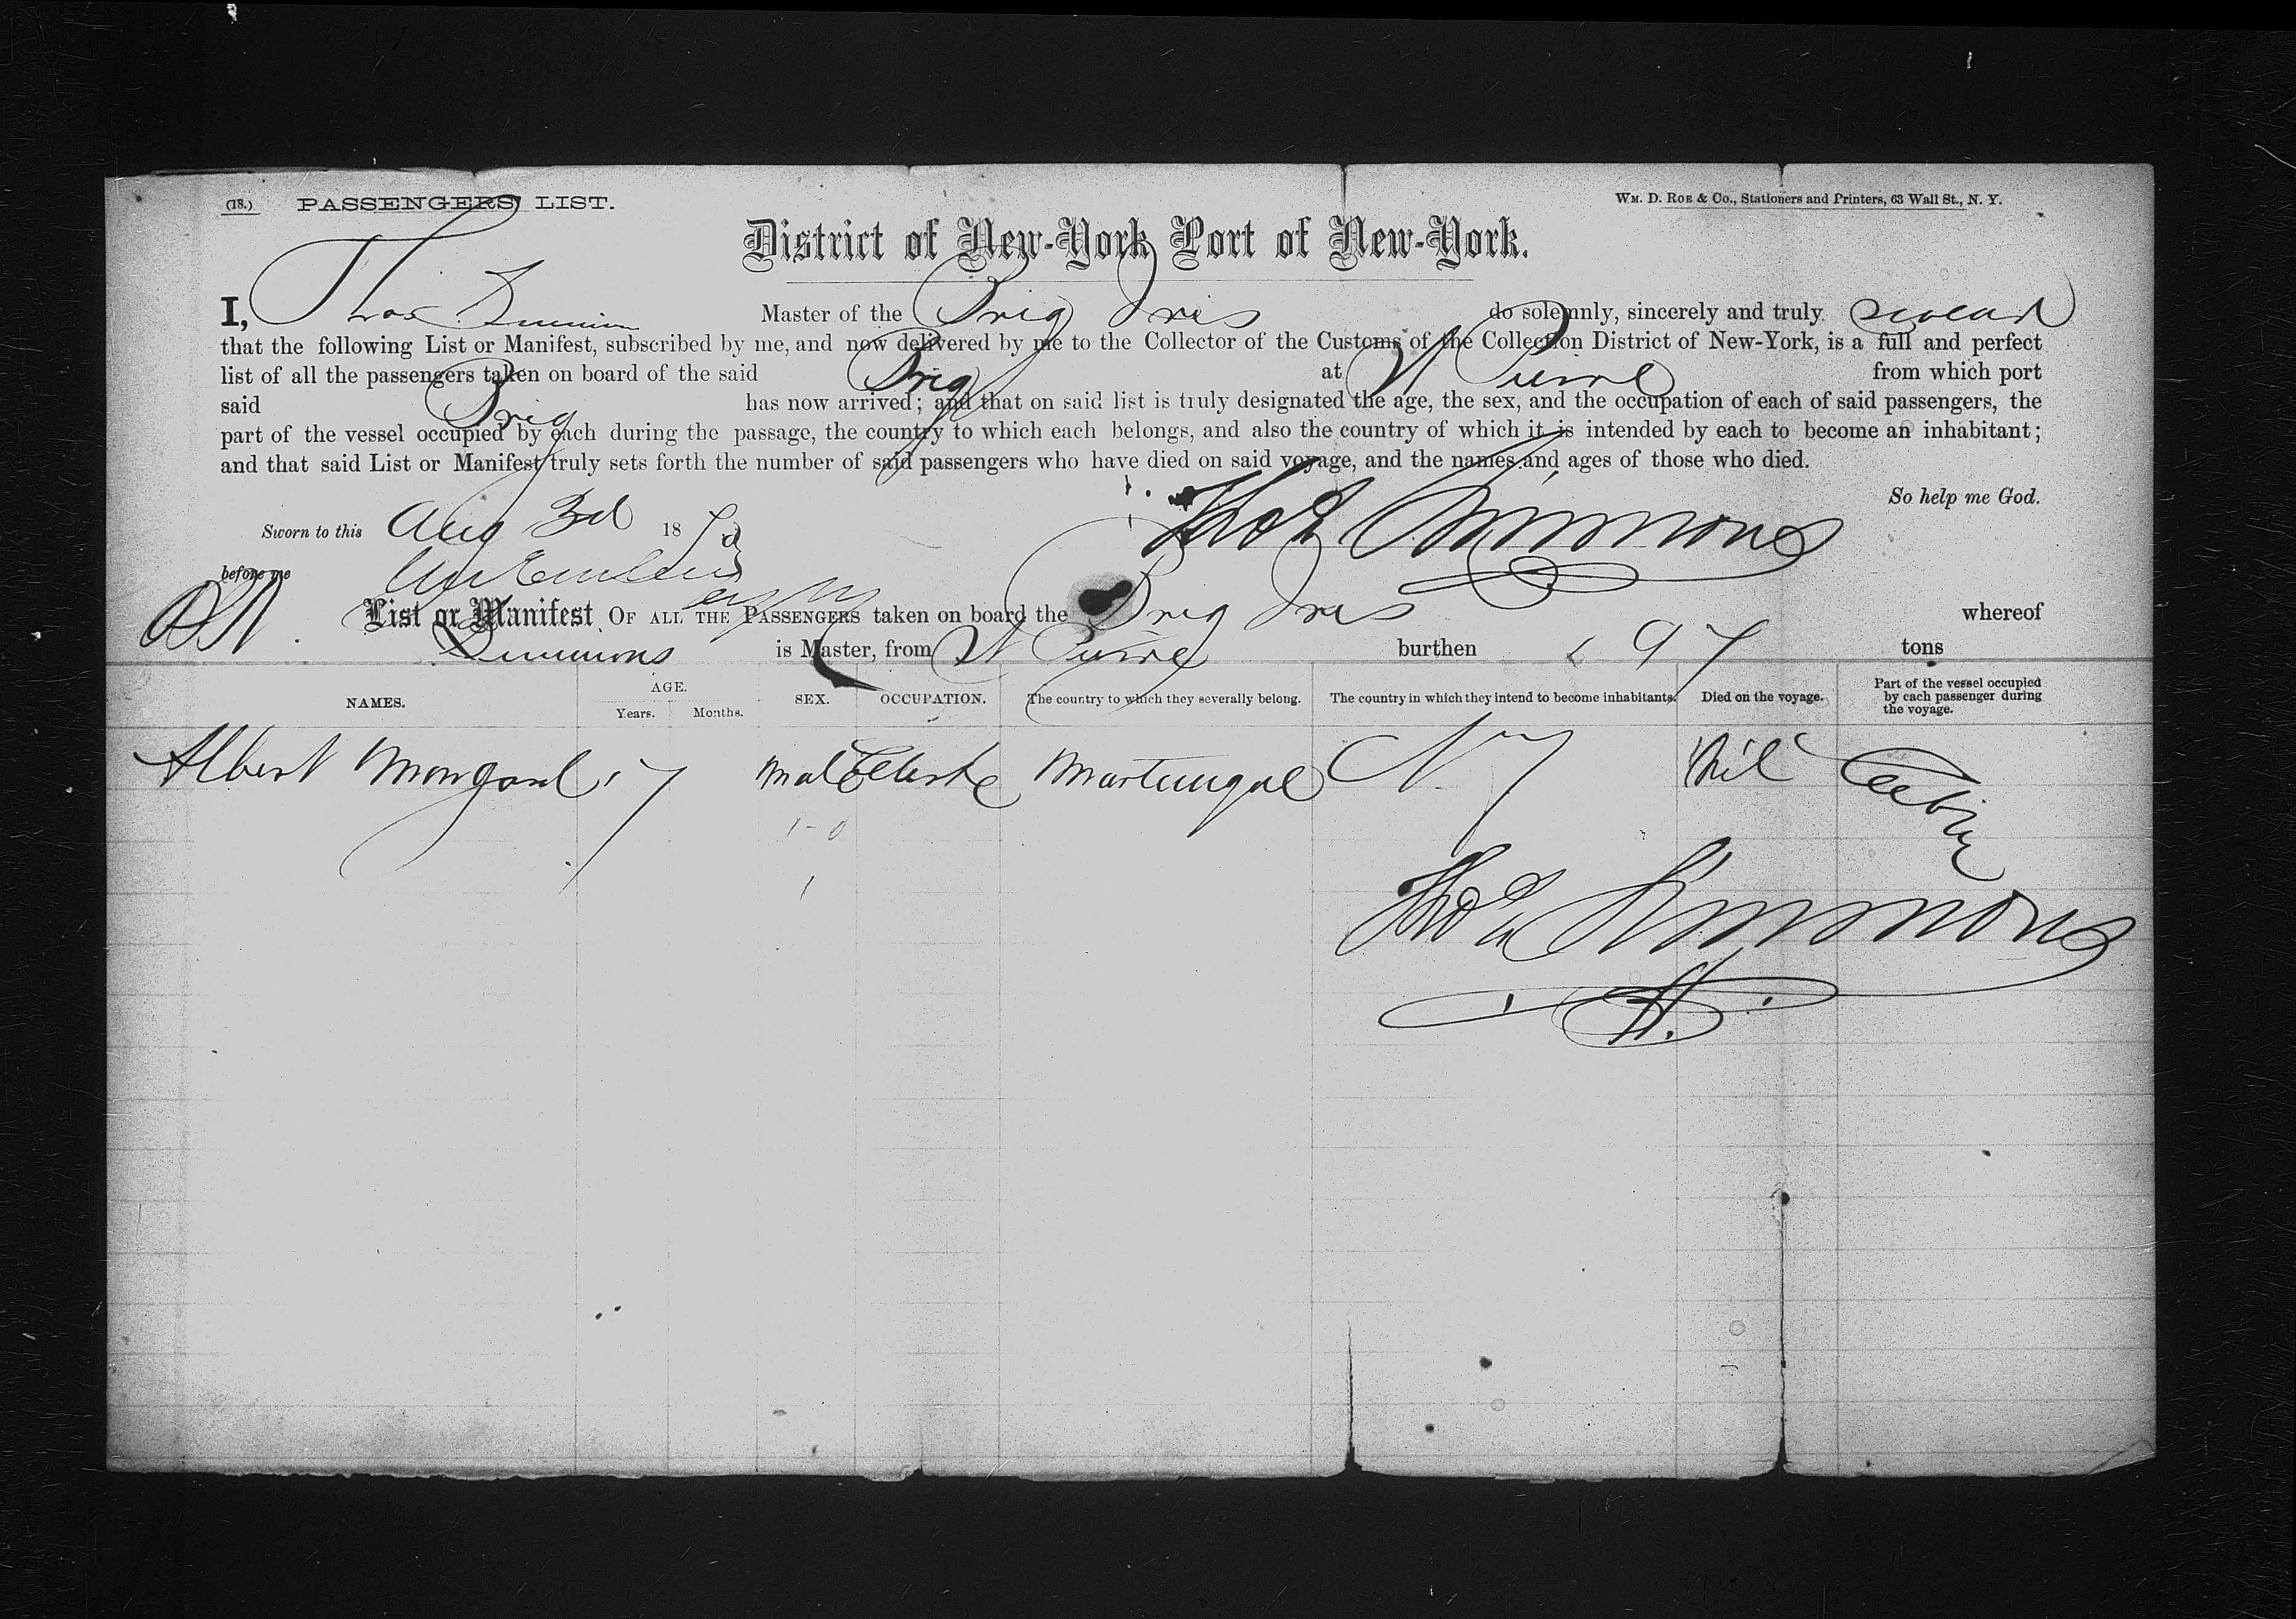 (18.) PASSENGERS' LIST. WM. D. ROE & Co., Stationers and Printers, 63 Wall St., N. Y.
District of New-York Port of New-York.
I, Thos Simmons Master of the Brig Iris do solemnly, sincerely and truly swear
that the following List or Manifest, subscribed by me, and now delivered by me to the Collector of the Customs of the Collection District of New-York, is a full and perfect
list of all the passengers taken on board of the said Brig at St Pierre from which port
said Brig has now arrived; and that on said list is truly designated the age, the sex, and the occupation of each of said passengers, the
part of the vessel occupied by each during the passage, the country to which each belongs, and also the country of which it is intended by each to become an inhabitant;
and that said List or Manifest truly sets forth the number of said passengers who have died on said voyage, and the names and ages of those who died.
So help me God.
Sworn to this Aug 3d 18 Thos E Simmons
before me
List or Manifest OF ALL THE PASSENGERS taken on board the Brig Iris whereof
Simmons is Master, from St Pierre burthen 97 tons
NAMES. AGE. Years. Months. SEX. OCCUPATION. The country to which they severally belong. The country in which they intend to become inhabitants. Died on the voyage. Part of the vessel occupied by each passenger during the voyage.
Albert 17 Male Martinique N Y Nil Cabin
1-0
1
Thos E Simmons